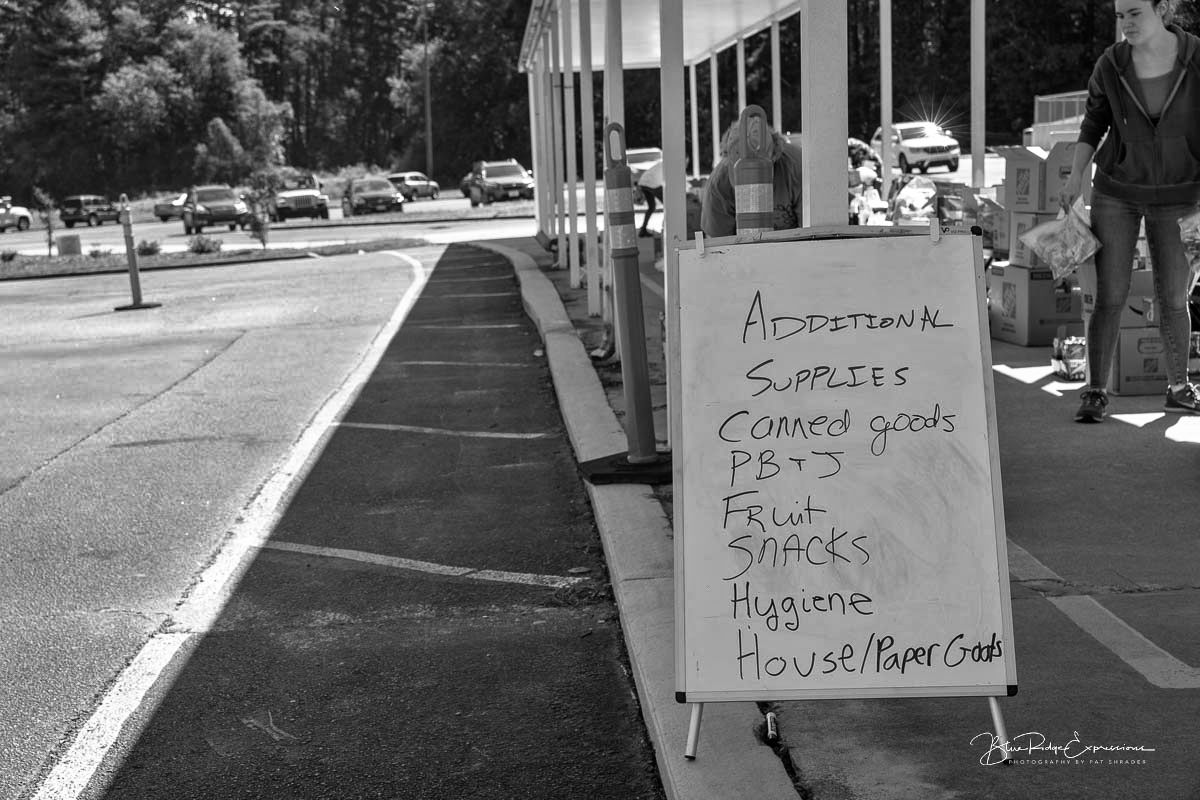 Additional
Supplies
Canned goods
PB+J
Fruit
Snacks
Hygiene
House/Paper Goods
BlueRidgeExpressions
PHOTOGRAPHY BY PAT SHRADER